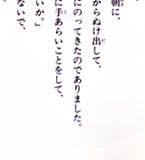 朝に、
からぬけ出して、
にのってきたのでありました。
に手あらいことをして、
いか。」
ないで、